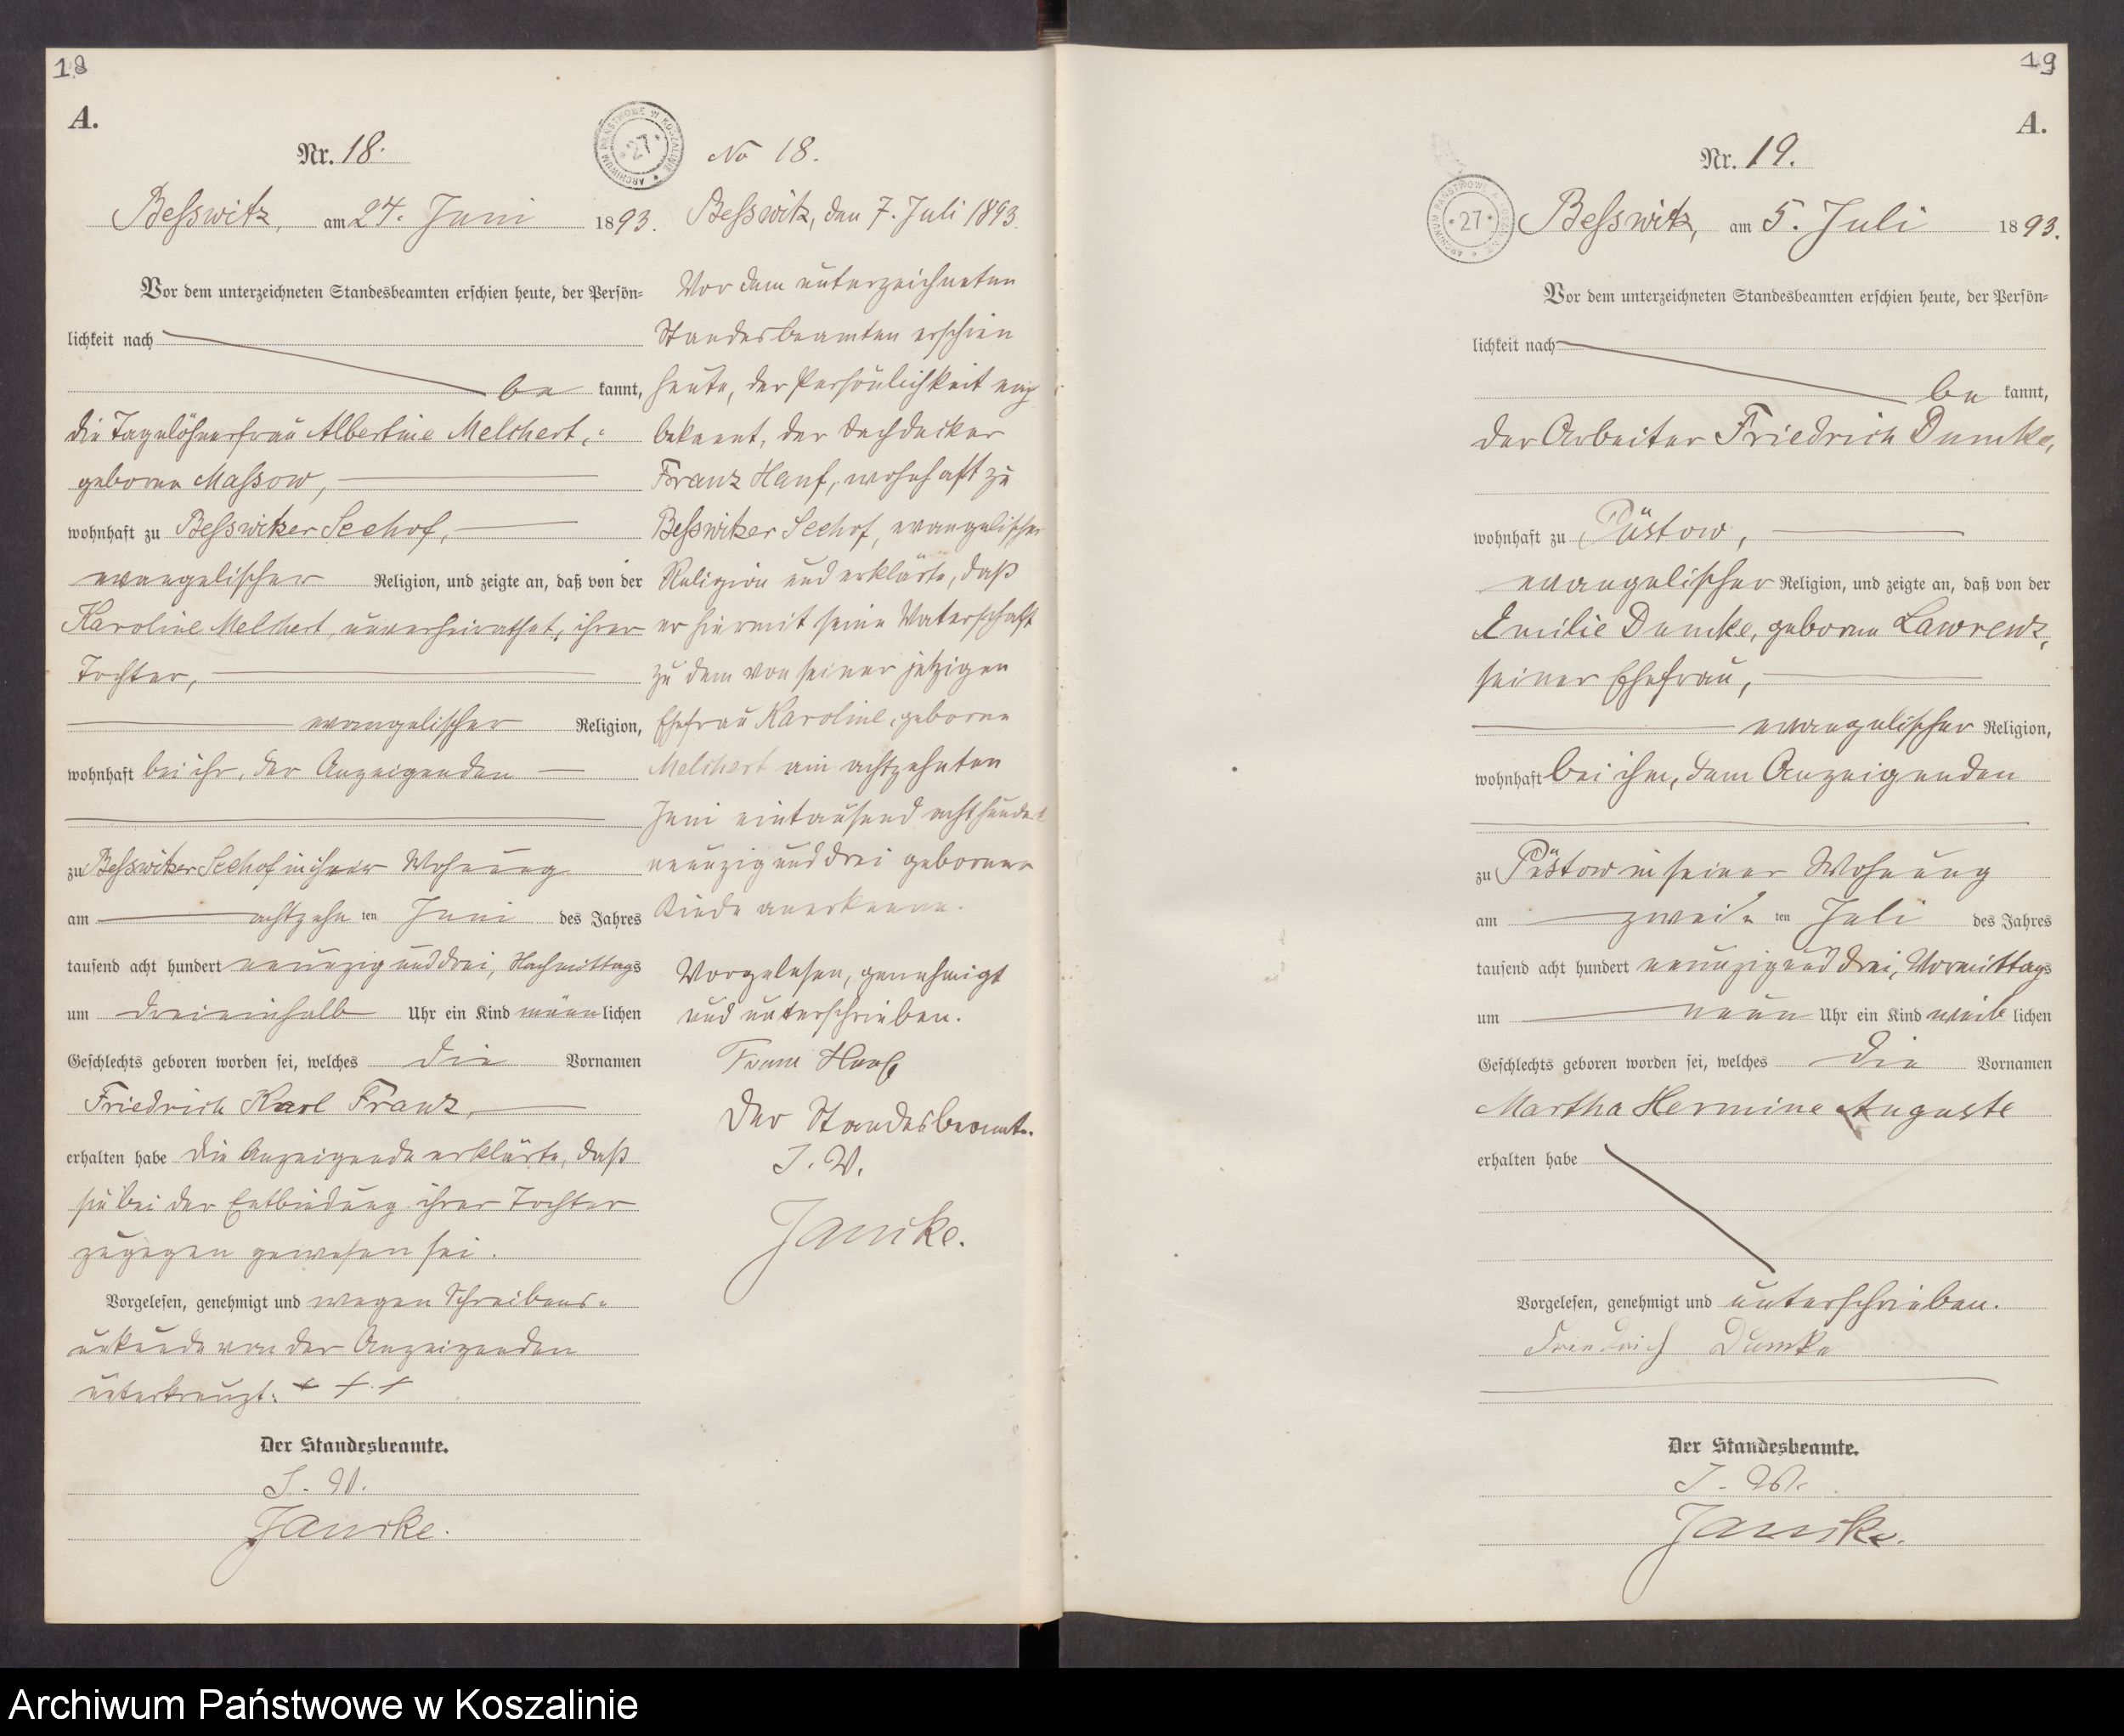 18
A.
Nr. 18.
Beßwitz, am 24. Juni 1893.
Vor dem unterzeichneten Standesbeamten erschien heute, der Persön-
lichkeit nach
be kannt,
die Tagelöhnerfrau Albertine Melchert,
geborne Maßow,
wohnhaft zu Beßwitzer Seehof,
evangelischer Religion, und zeigte an, daß von der
Karoline Melchert, unverheirathet, ihrer
Tochter,
evangelischer Religion,
wohnhaft bei ihr, der Anzeigenden
zu Beßwitzer Seehof in ihrer Wohnung
am achtzehn ten Juni des Jahres
tausend acht hundert neunzig und drei, Nachmittags
um dreieinhalb Uhr ein Kind männ lichen
Geschlechts geboren worden sei, welches die Vornamen
Friedrich Karl Franz,
erhalten habe die Anzeigende erklärte, daß
sie bei der Entbindung ihrer Tochter
zugegen gewesen sei.
Vorgelesen, genehmigt und wegen Schreibens-
unkunde von der Anzeigenden
unterkreuzt. + + +
Der Standesbeamte.
I. V.
Jancke.
ARCHIWUM PAŃSTWOWE W KOSZALINIE
*27*
No 18.
Beßwitz, den 7. Juli 1893.
Vor dem unterzeichneten
Standesbeamten erschien
heute, der Persönlichkeit nach
bekannt, der Dachdecker
Franz Hanf, wohnhaft zu
Beßwitzer Seehof, evangelischer
Religion und erklärte, daß
er hiermit seine Vaterschaft
zu dem von seiner jetzigen
Ehefrau Karoline, geborne
Melchert am achtzehnten
Juni eintausend achthundert
neunzig und drei geborenen
Kinde anerkenne.
Vorgelesen, genehmigt
und unterschrieben.
Franz Hanf
Der Standesbeamte.
I. V.
Jancke.
19
A.
Nr. 19.
ARCHIWUM PAŃSTWOWE W KOSZALINIE
*27*
Beßwitz, am 5. Juli 1893.
Vor dem unterzeichneten Standesbeamten erschien heute, der Persön-
lichkeit nach
be kannt,
der Arbeiter Friedrich Dumke,
wohnhaft zu Püstow,
evangelischer Religion, und zeigte an, daß von der
Emilie Dumke, geborne Lawrenz,
seiner Ehefrau,
evangelischer Religion,
wohnhaft bei ihm, dem Anzeigenden
zu Püstow in seiner Wohnung
am zwei ten Juli des Jahres
tausend acht hundert neunzig und drei, Vormittags
um neun Uhr ein Kind weib lichen
Geschlechts geboren worden sei, welches die Vornamen
Martha Hermine Auguste
erhalten habe
Vorgelesen, genehmigt und unterschrieben.
Friedrich Dumke
Der Standesbeamte.
I. V.
Jancke.
Archiwum Państwowe w Koszalinie